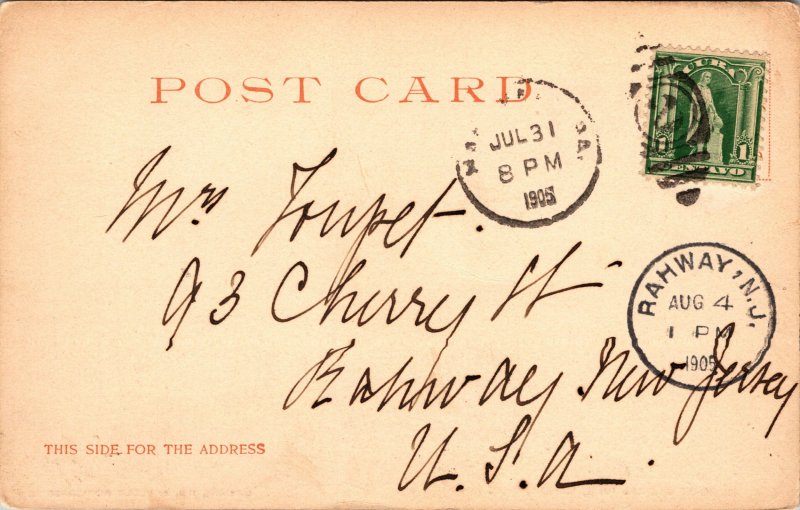 POST CARD
CUBA
1 1
CENTAVO
JUL 31
8 PM
1905
Mrs Toupet.
93 Cherry St
Rahway New Jersey
U.S.A.
RAHWAY, N.J.
AUG 4
1 PM
1905
THIS SIDE FOR THE ADDRESS